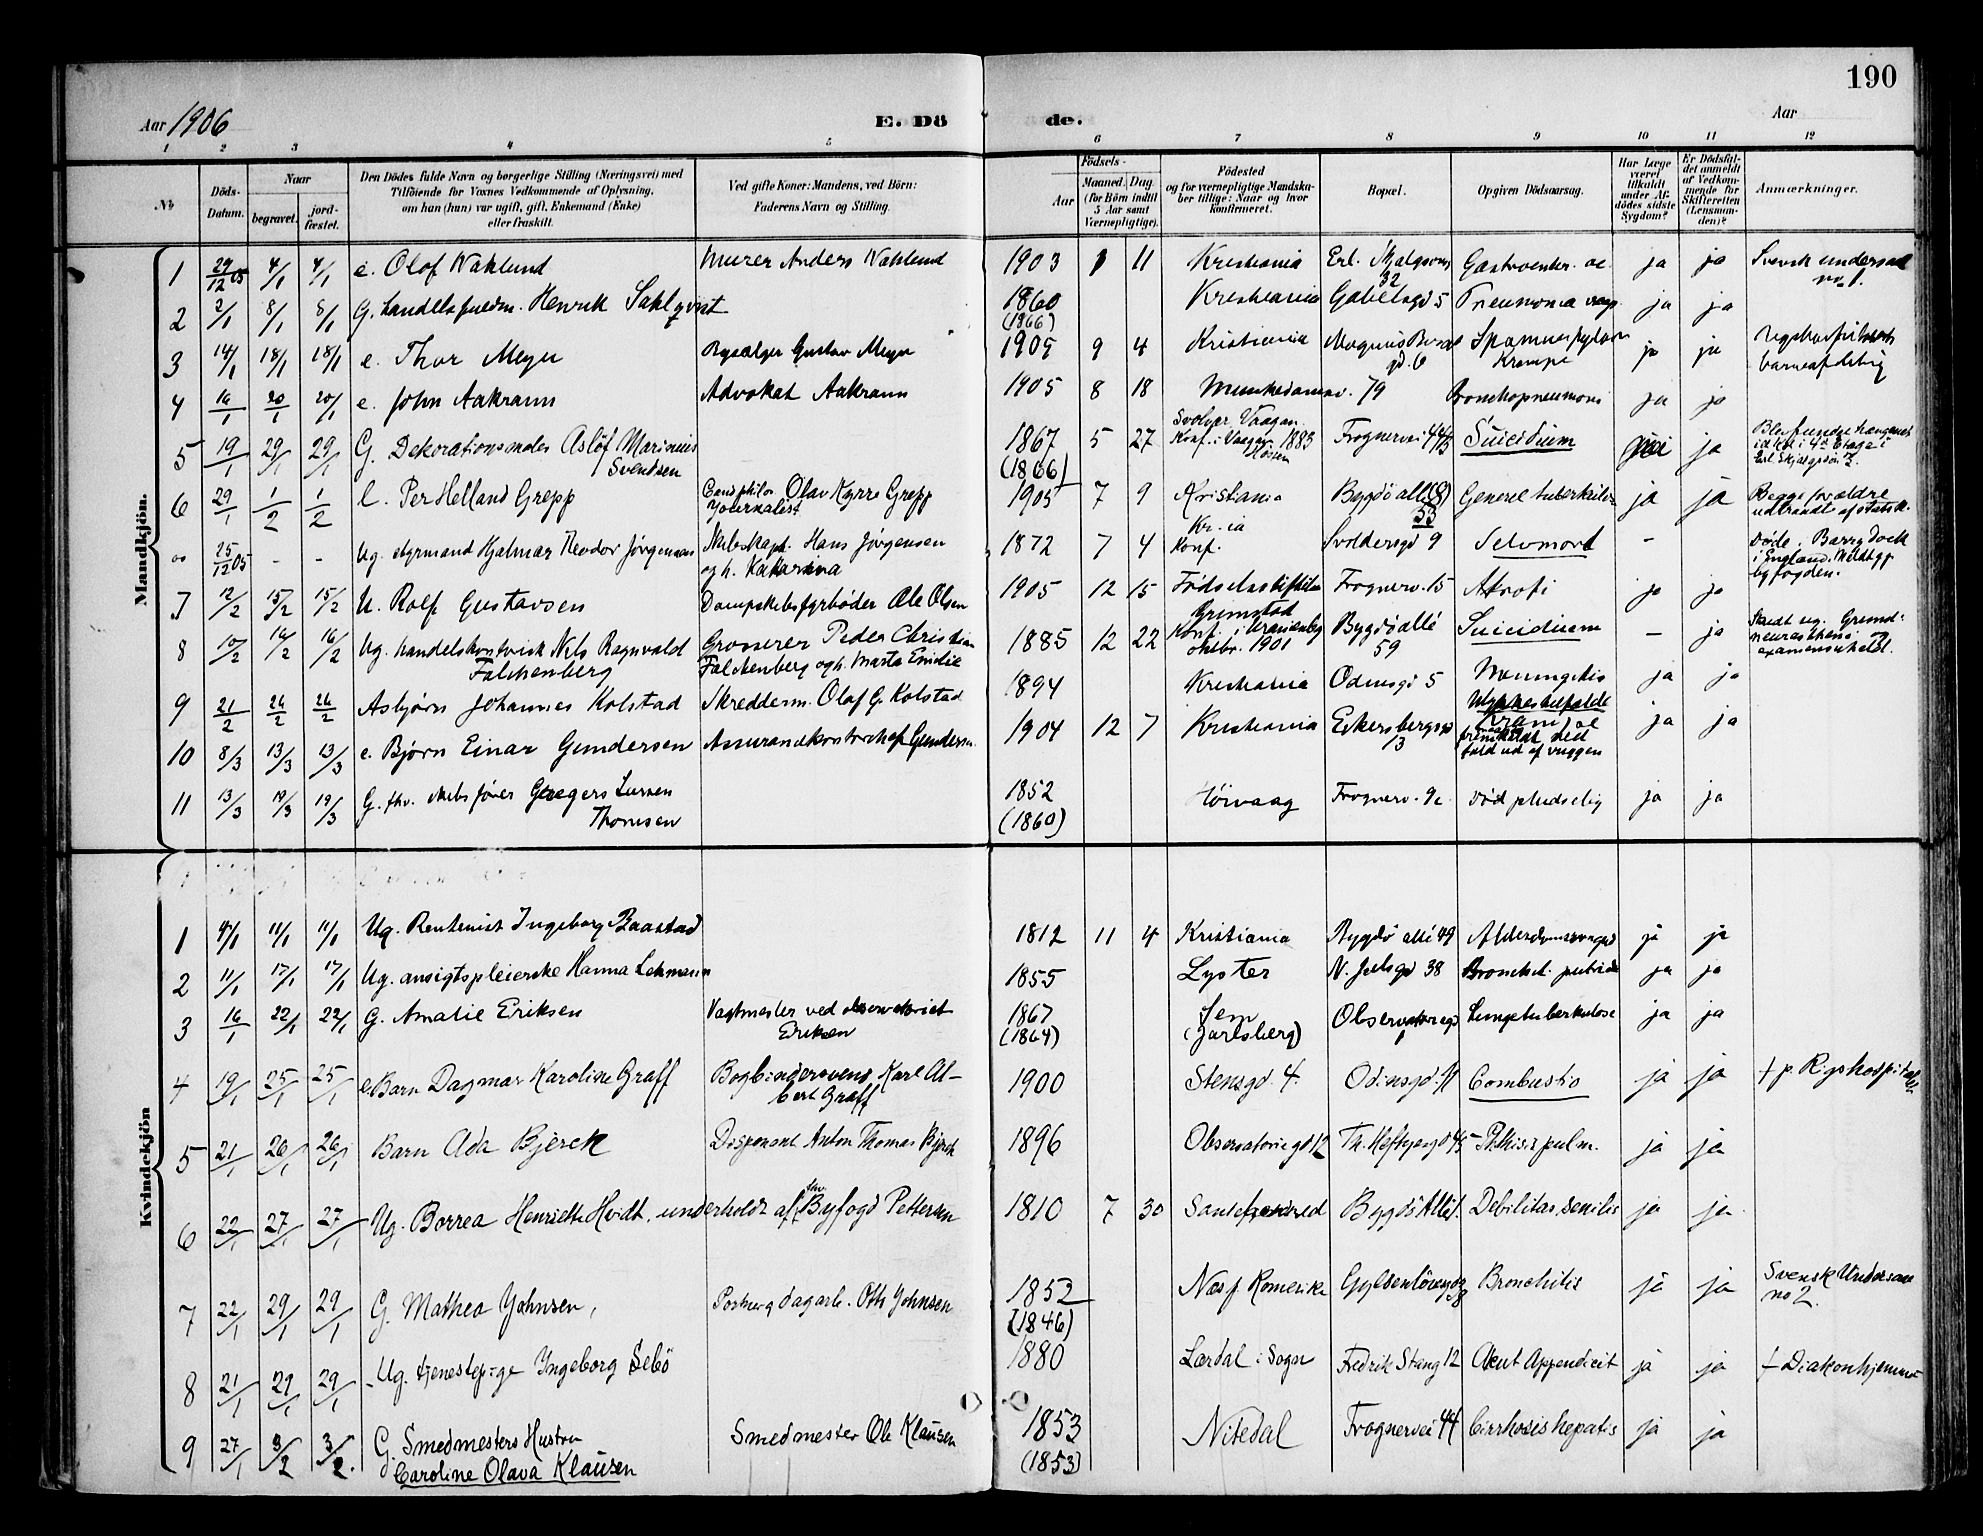 190
Aar 1906
E. Döde.
Aar
1 2 3 4 5 6 7 8 9 10 11 12
No
Döds-Datum.
Naar
begravet.
jordfæstet.
Den Dödes fulde Navn og borgerlige Stilling (Næringsvei) med
Tilföiende for Voxnes Vedkommende af Oplysning,
om han (hun) var ugift, gift, Enkemand (Enke)
eller fraskilt.
Ved gifte Koner: Mandens, ved Börn:
Faderens Navn og Stilling.
Födsels-
Aar
Maaned. Dag
(for Börn indtil
5 Aar samt
Værnepligtige).
Födested
og for værnepligtige Mandskaber
tillige: Naar og hvor
konfirmeret.
Bopæl.
Opgiven Dödsaarsag.
Har Læge
været
tilkaldt
under Afdödes
sidste
Sygdom?
Er Dödsfaldet
anmeldt
af Vedkommende
for
Skifteretten
(Lensmanden)?
Anmærkninger.
Mandkjön.
1 29/12 05 4/1 4/1 e. Olof Waklund Murer Anders Waklund 1903 1 11 Kristiania Erl. Skjalgsøns 32 Gastroenter. ac. ja ja Svensk undersaat no 1.
2 2/1 8/1 8/1 G. Handelsfuldm. Henrik Sahlqvist 1860 (1866) Kristiania Gabelsgd 5 Pneumonia ja ja
3 14/1 18/1 18/1 e. Thor Meyer Gustav Meyer 1905 9 4 Kristiania gd. 6 Krampe ja ja Rigshospitalets barneafdeling
4 16/1 20/1 20/1 e. John Aakrann Advokat Aakrann 1905 8 18 Munkedamsv. 79 Bronchopneumoni ja ja
5 19/1 29/1 29/1 G. Dekorationsmaler Asløf Marinius Svendsen 1867 (1866) 5 27 Svolvær Vaagan Konf. i Vaagan 1883 Frognervei 44 Suicidium nei ja Blev funden hængende i 4de Etage i Erl. Skjalgsøns
6 29/1 1/2 1/2 e. Per Helland Grepp Cand philos Olav Kyrre Grepp Journalist 1905 7 9 Kristiania Bygdø alle 53 Generel tuberkulose ja ja Begge forældre udtraadt af statsk.
25/12 05 - - Ug. styrmand Hjalmar Teodor Jørgensen Skibskapt. Hans Jørgensen og h. Katarina 1872 7 4 Kr.ia Konf. Svoldersgd 9 Selvmord - Døde i Barry Dock i England. byfogden.
7 12/2 15/2 15/2 U. Rolf Gustavsen Dampskibsfyrbøder Ole Olsen 1905 12 15 Fødselsstiftelsen Frognerv. 15 Atrofi ja ja
8 10/2 16/2 16/2 Ug. handelskontorist Nils Ragnvald Falchenberg Grosserer Peder Christian Falchenberg og h. Marta Emilie 1885 12 22 Grimstad Konf. i Uranienborg oktbr. 1901 Bygdø allé 59 Suicidium - ja neurastheni
9 21/2 26/2 26/2 Asbjørn Johannes Kolstad Skredderm. Olaf G. Kolstad 1894 Kristiania Odinsgd 5 Meningitis ja ja
10 8/3 13/3 13/3 e. Bjørn Einar Gundersen Assurandkontorchef Gundersen 1904 12 7 Kristiania Eckersbergsgd 3 Ulykkestilfælde fremkaldt ved fald ud af vuggen ja ja
11 13/3 19/3 19/3 G. fhv. skibsfører Gregers Lursen Thomsen 1852 (1860) Høivaag Frognerv. 9c død pludselig ja ja
Kvindekjön
1 4/1 11/1 11/1 Ug. Rentenist Ingeborg Baastad 1812 11 4 Kristiania Bygdø allé 49 Alderdomssvaghed ja ja
2 11/1 17/1 17/1 Ug. ansigtspleierske Hanna Lehmann 1855 Lyster N. Juelsgd 38 Bronchit. putrida ja ja
3 16/1 22/1 22/1 G. Amalie Eriksen Vagtmester ved observatoriet Eriksen 1867 (1864) Sem (Jarlsberg) Observatoriegd Lungetuberkulose ja ja
4 19/1 25/1 25/1 e Barn Dagmar Karoline Graff Bogbindersvend Karl Albert Graff 1900 Stensgd. 4. Odinsgd. 11 Combustio ja ja † p Rigshospitalet
5 21/1 26/1 26/1 Barn Ada Bjerck Disponent Anton Thomas Bjerck 1896 Observatoriegd 12 Th. Heftyesgd 45 Phthisis pulm. ja ja
6 22/1 27/1 27/1 Ug. Borrea Henriette Hvidt, underholdt af fhv. Byfogd Pettersen 1810 7 30 Sandefjord Bygdø Allé 1. Debilitas senilis ja ja
7 22/1 29/1 29/1 G. Mathea Johnsen, dagarb. Otto Johnsen 1852 (1846) Næs p Romerike Gyldenløvesgd 38 Bronchitis ja ja Svensk Undersaat no 2.
8 21/1 29/1 29/1 Ug. tjenestepige Ingeborg Sebö 1880 Lærdal i Sogn Fredrik Stang 12 Akut Appendicit ja ja † Diakonhjemmet
9 27/1 3/2 3/2. G. Smedmesters Hustru Caroline Olava Klausen Smedmester Ole Klausen 1853 (1853) Nitedal Frognervei 44 Cirrhosis hepatis ja ja